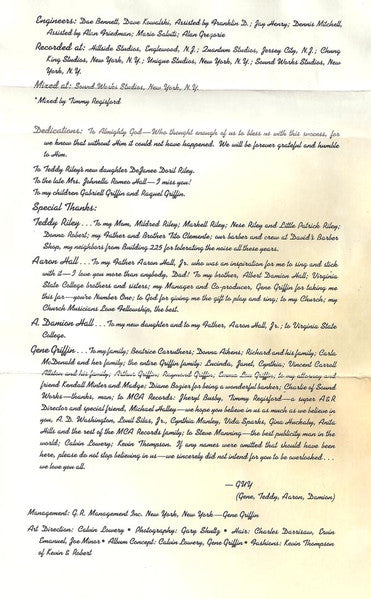 Engineers: Dae Bennett, Dave Kowalski, Assisted by Franklin D.; Jay Henry; Dennis Mitchell,
Assisted by Alan Friedman; Mario Salvati; Alan Gregorie
Recorded at: Hillside Studios, Englewood, N.J.; Quantum Studios, Jersey City, N.J.; Chung
King Studios, New York, N.Y.; Unique Studios, New York, N.Y.; Sound Works Studios, New
York, N.Y.
Mixed at: Sound Works Studios, New York, N.Y.
*Mixed by Timmy Regisford
Dedications: To Almighty God—Who thought enough of us to bless us with this success, for
we know that without Him it could not have happened. We will be forever grateful and humble
to Him.
To Teddy Riley's new daughter DeJanee Daril Riley.
To the late Mrs. Johnella Romeo Hall—I miss you!
To my children Gabriell Griffin and Raquel Griffin.
Special Thanks:
Teddy Riley...To my Mom, Mildred Riley; Markell Riley; Miss Riley and Little Patrick Riley;
Donna Robert; my Father and Brother Tito Clemente; our barber and crew at David's Barber
Shop, my neighbors from Building 225 for tolerating the noise all these years.
Aaron Hall...To my Father Aaron Hall, Jr. who was an inspiration for me to sing and stick
with it—I love you more than anybody, Dad! To my brother, Albert Damion Hall; Virginia
State College brothers and sisters; my Manager and Co-producer, Gene Griffin for taking me
this far—you're Number One; to God for giving me the gift to play and sing; to my Church; my
Church Musicians Love Fellowship, the best.
A. Damion Hall...To my new daughter and to my Father, Aaron Hall, Jr.; to Virginia State
College.
Gene Griffin...To my family; Beatrice Carruthers; Donna Athens; Richard and his family; Carla
McDonald and her family; the entire Griffin family; Lucinda, Janet, Cynthia; Vincent Carroll
and his family, Arthur Griffin, Raymond Griffin, Emma Lou Griffin, to my attorney and
friend Kendall Minter and Madge; Diane Bozier for being a wonderful banker; Charlie of Sound
Works—thanks, man; to MCA Records: Jheryl Busby, Timmy Regisford—a super A&R
Director and special friend, Michael Halley—we hope you believe in us as much as we believe in
you, A. D. Washington, Louil Silas, Jr., Cynthia Manley, Vida Sparks, Gina Huckaby, Anita
Hills and the rest of the MCA Records family; to Steve Manning—the best publicity man in the
world; Calvin Lowery; Kevin Thompson. If any names were omitted that should have been
here, please do not stop believing in us—we sincerely did not intend for you to be overlooked...
we love you all.
— GUY
(Gene, Teddy, Aaron, Damion)
Management: G.R. Management Inc. New York, New York—Gene Griffin
Art Direction: Calvin Lowery • Photography: Gary Shultz • Hair: Charles Darrisaw, Ervin
Emanuel, Joe Minor • Album Concept: Calvin Lowery, Gene Griffin • Fashions: Kevin Thompson
of Kevin & Robert